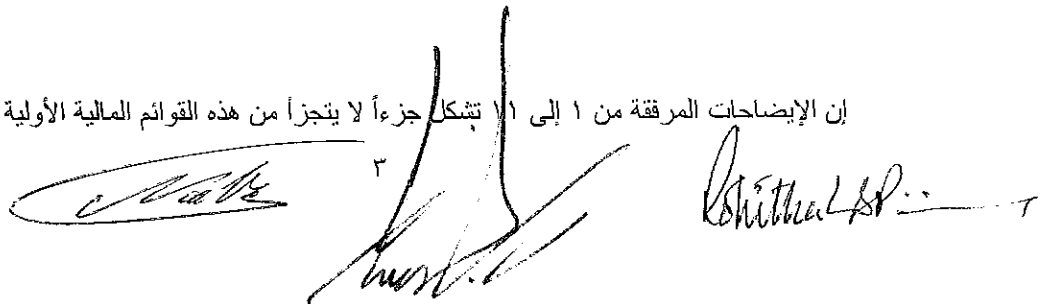 إن الإيضاحات المرفقة من ١ إلى ١١ تشكل جزءاً لا يتجزأ من هذه القوائم المالية الأولية
٣
Rohitha